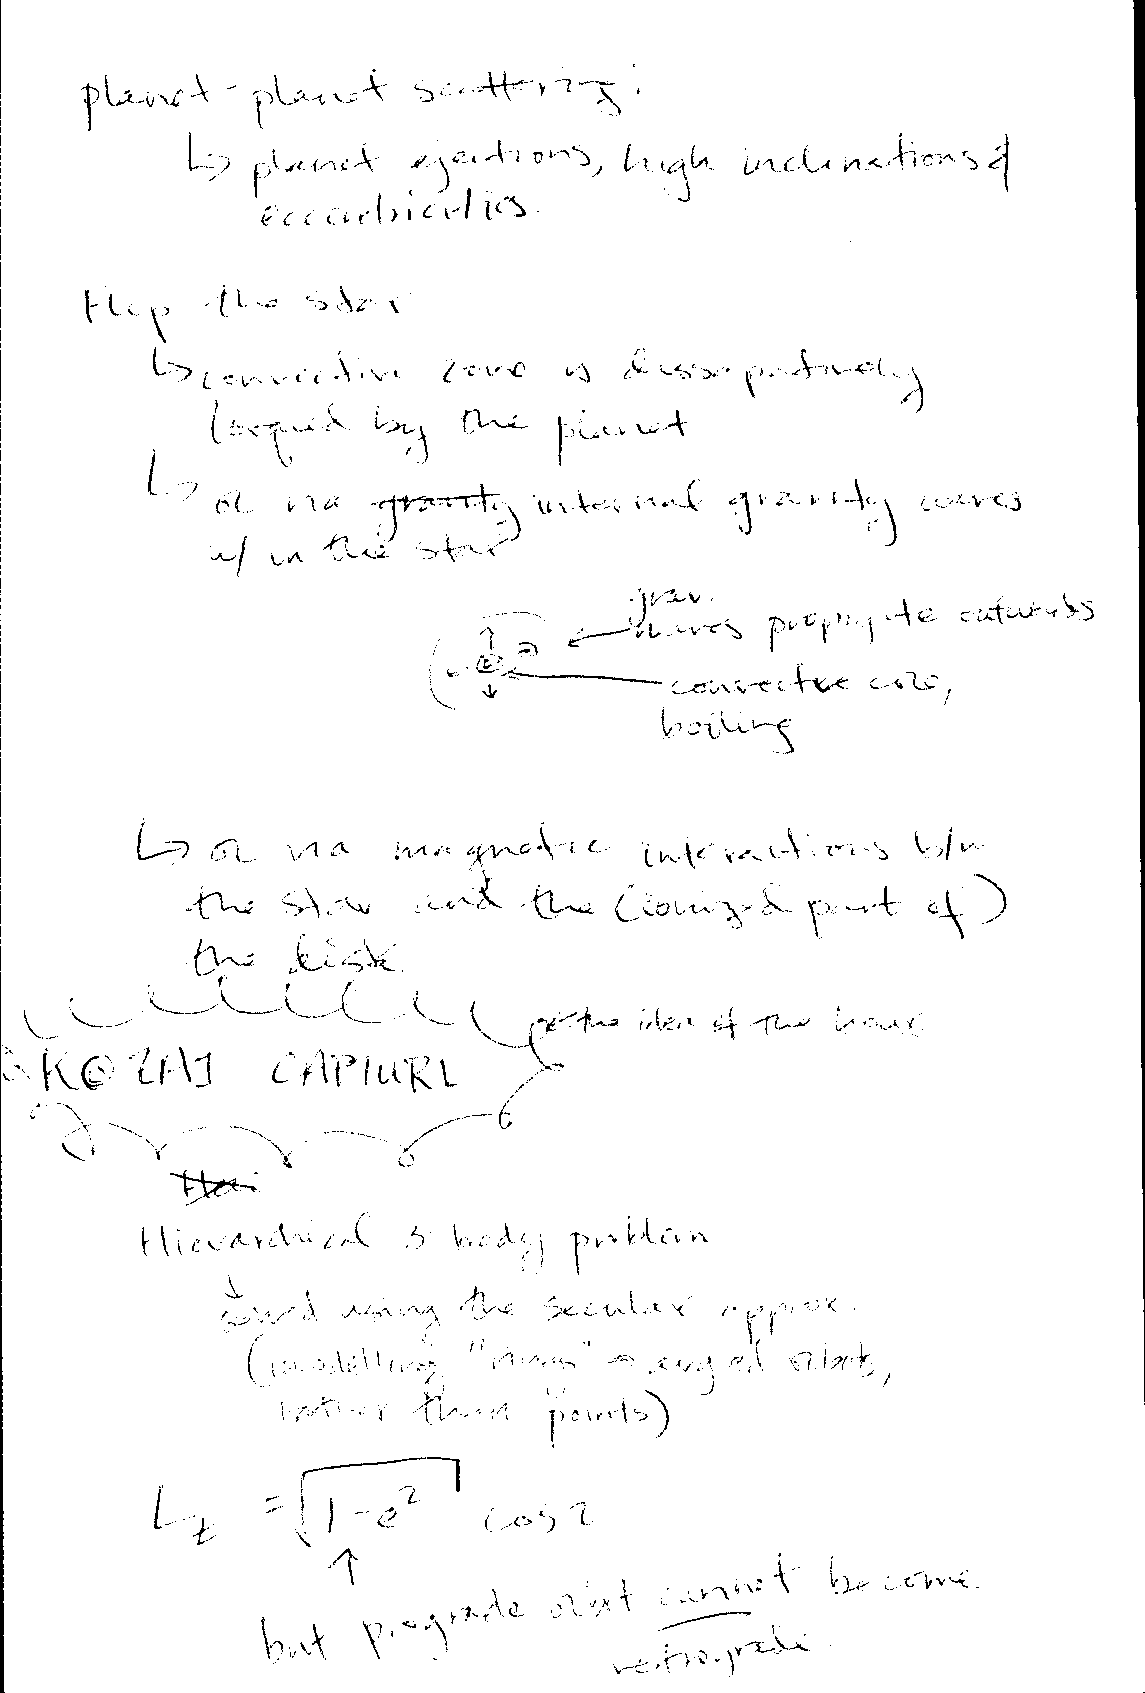 planet-planet scattering:
↳ planet ejections, high inclinations &
eccentricities.
Flip the star
↳ convective zone is dissipatively
torqued by the planet
↳ or via gravity internal gravity waves
w/in the star
grav.
waves propagate outwards
convective core,
boiling
↳ or via magnetic interactions b/w
the star and the (ionized part of)
the disk
the idea of the hour
KOZAI CAPTURE
Hierarchical 3 body problem
↓
solved using the secular approx.
(modelling "rings" avg'ed orbits,
rather than "points)
L_z = √1-e² cos i
↑
but prograde orbit cannot become
retrograde.